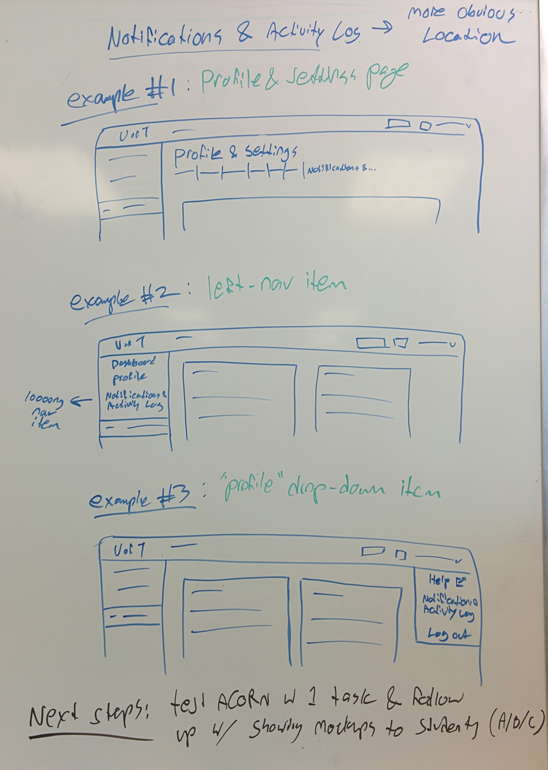 Notifications & Activity Log → more obvious
Location
example #1: Profile & settings page
U of T
Profile & settings
Notifications &...
example #2: left-nav item
U of T
Dashboard
Profile
Notifications &
Activity Log
loooong
nav
item
example #3: "profile" drop-down item
U of T
Help
Notifications &
Activity Log
Log out
Next steps: test ACORN w 1 task & follow
up w/ showing mockups to students (A/B/C)